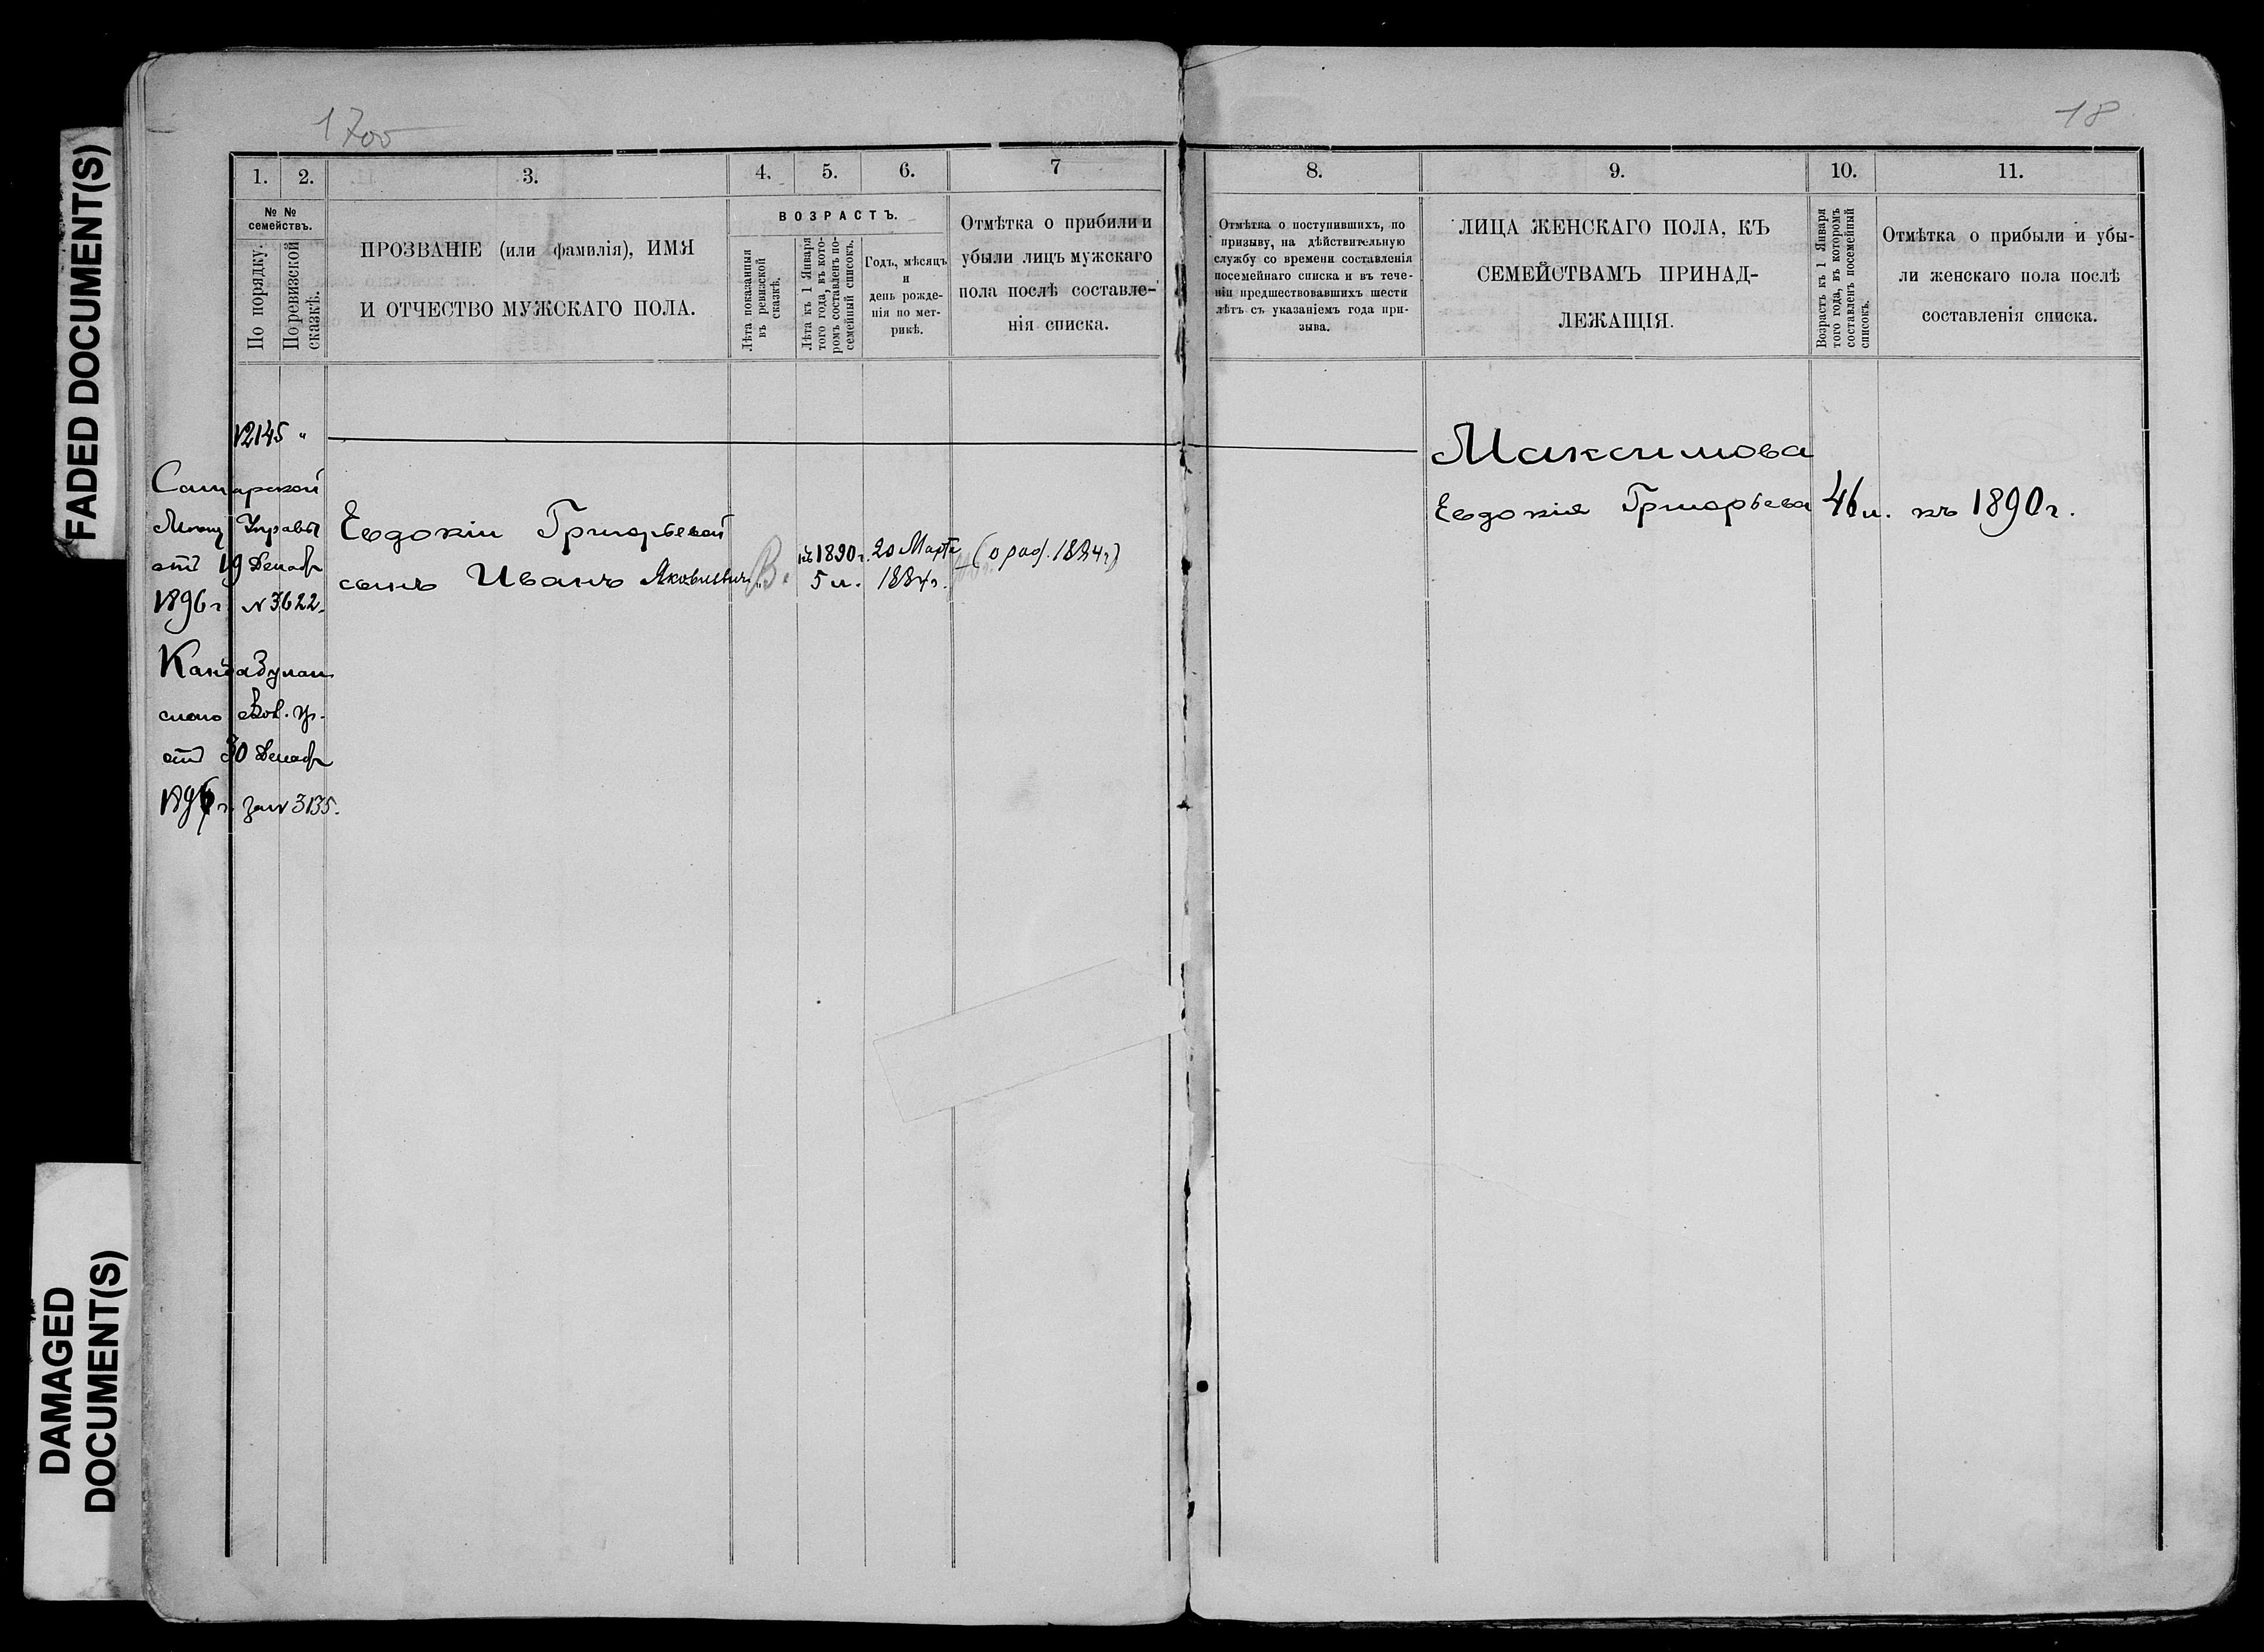 FADED DOCUMENT(S)
DAMAGED
DOCUMENT(S)
1700
1.
2.
3.
4.
5.
6.
7
№ №
семействъ.
По порядку.
По ревизской
сказкѣ.
ПРОЗВАНІЕ (или фамилія), ИМЯ
И ОТЧЕСТВО МУЖСКАГО ПОЛА.
ВОЗРАСТЪ.
Лѣта показанныя
въ ревизской
сказкѣ.
Лѣта къ 1 Января
того года, въ кото-
ромъ составленъ по-
семейный списокъ.
Годъ, мѣсяцъ
и
день рожде-
нія по мет-
рикѣ.
Отмѣтка о прибыли и
убыли лицъ мужскаго
пола послѣ составле-
нія списка.
№2145 "
Самарской
Мѣщ Управы
отъ 19 Декабр
1896 г. №3622.
скаго Вол. Пр.
отъ 30 Декабр
1896 г. за № 3135.
Евдокіи Григорьевой
сынъ Иванъ Яковлевичъ
В.
къ 1890 г.
5 л.
20 Марта
1884 г.
(о рад. 1884 г)
18
8.
9.
10.
11.
Отмѣтка о поступившихъ, по
призыву, на дѣйствительную
службу со времени составленія
посемейнаго списка и въ тече-
ніи предшествовавшихъ шести
лѣтъ съ указаніемъ года при-
зыва.
ЛИЦА ЖЕНСКАГО ПОЛА, КЪ
СЕМЕЙСТВАМЪ ПРИНАД-
ЛЕЖАЩІЯ.
Возрастъ къ 1 Января
того года, въ которомъ
составленъ посемейный
списокъ.
Отмѣтка о прибыли и убы-
ли женскаго пола послѣ
составленія списка.
Максимова
Евдокія Григорьева
46 л. къ 1890 г.